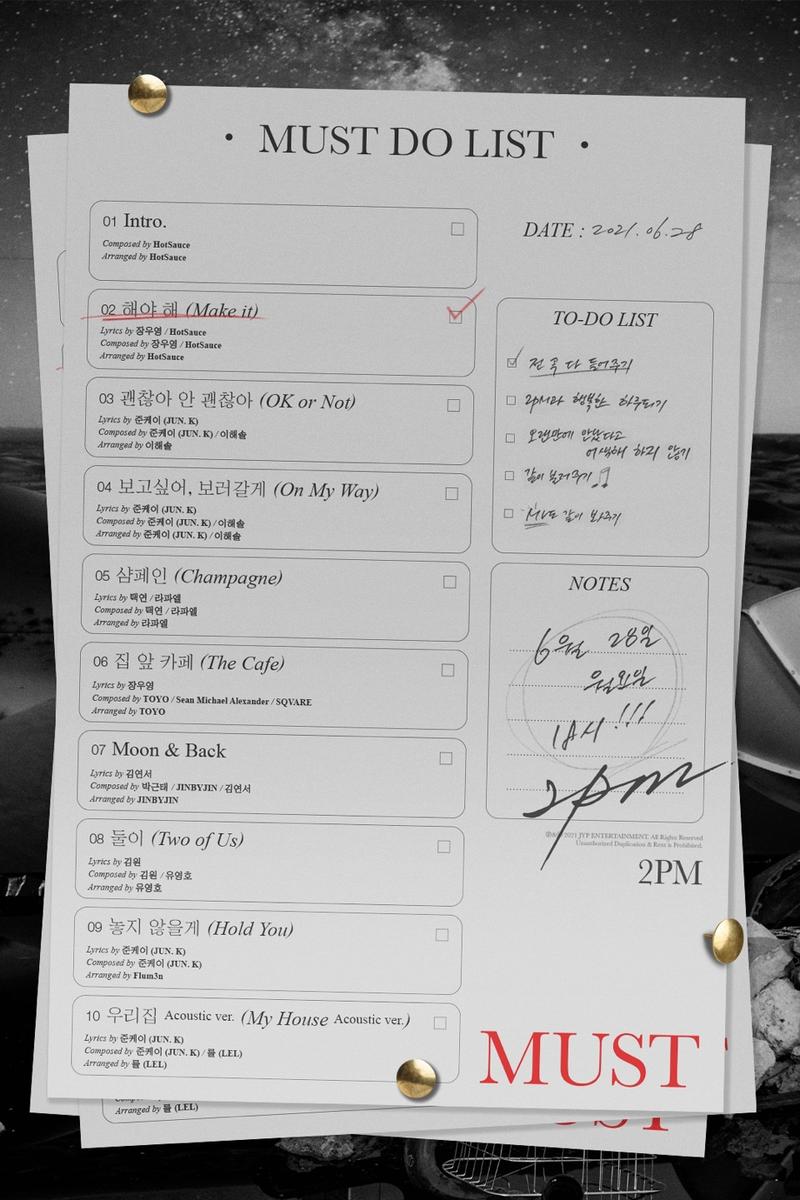 • MUST DO LIST •
01 Intro.
Composed by HotSauce
Arranged by HotSauce
02 해야 해 (Make it)
Lyrics by 장우영 / HotSauce
Composed by 장우영 / HotSauce
Arranged by HotSauce
03 괜찮아 안 괜찮아 (OK or Not)
Lyrics by 준케이 (JUN. K)
Composed by 준케이 (JUN. K) / 이해솔
Arranged by 이해솔
04 보고싶어, 보러갈게 (On My Way)
Lyrics by 준케이 (JUN. K)
Composed by 준케이 (JUN. K) / 이해솔
Arranged by 준케이 (JUN. K) / 이해솔
05 샴페인 (Champagne)
Lyrics by 택연 / 라파엘
Composed by 택연 / 라파엘
Arranged by 라파엘
06 집 앞 카페 (The Cafe)
Lyrics by 장우영
Composed by TOYO / Sean Michael Alexander / SQVARE
Arranged by TOYO
07 Moon & Back
Lyrics by 김연서
Composed by 박근태 / JINBYJIN / 김연서
Arranged by JINBYJIN
08 둘이 (Two of Us)
Lyrics by 김원
Composed by 김원 / 유영호
Arranged by 유영호
09 놓지 않을게 (Hold You)
Lyrics by 준케이 (JUN. K)
Composed by 준케이 (JUN. K)
Arranged by Flum3n
10 우리집 Acoustic ver. (My House Acoustic ver.)
Lyrics by 준케이 (JUN. K)
Composed by 준케이 (JUN. K) / 륄 (LEL)
Arranged by 륄 (LEL)
DATE : 2021.06.28
TO-DO LIST
전 곡 다 들어주기
2PM과 행복한 하루되기
오랜만에 만났다고
어색해 하지 않기
같이 불러주기
MV도 같이 봐주기
NOTES
6월 28일
월요일
1시 !!!
2pm
Ⓟ&© 2021 JYP ENTERTAINMENT. All Rights Reserved
Unauthorized Duplication & Rent is Prohibited.
2PM
MUST
Arranged by 륄 (LEL)